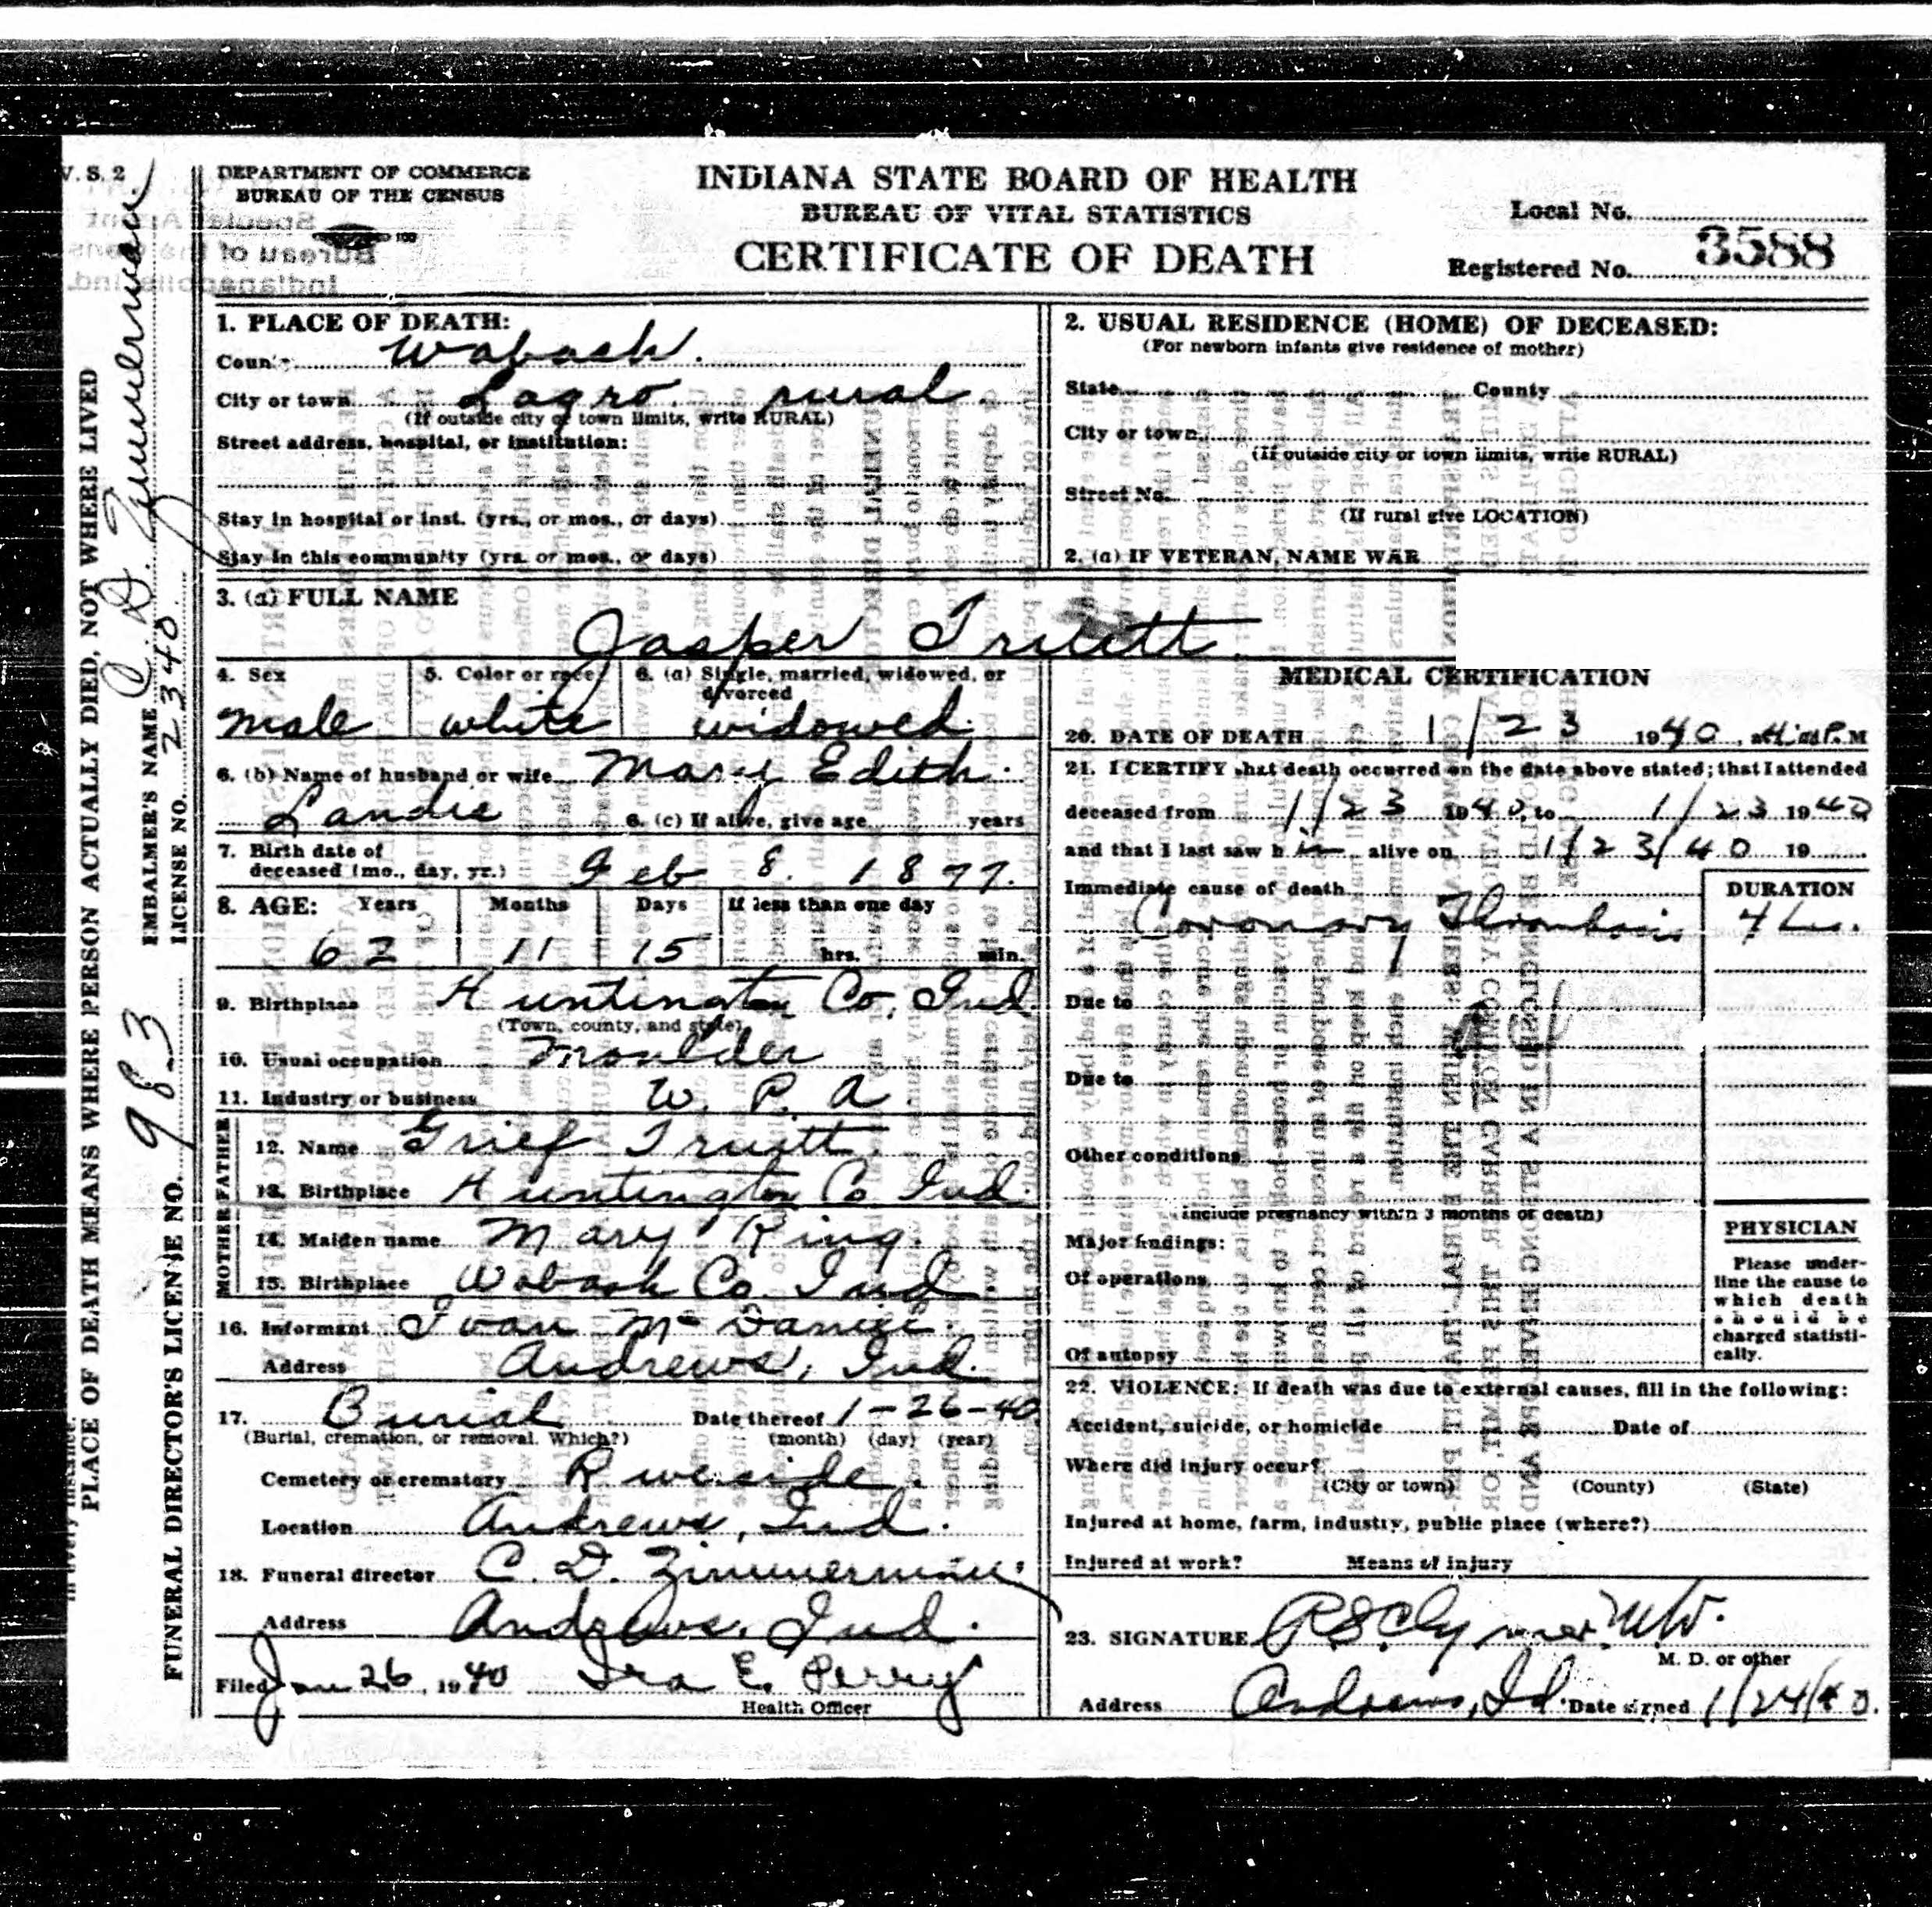 V. S. 2
DEPARTMENT OF COMMERCE
BUREAU OF THE CENSUS
INDIANA STATE BOARD OF HEALTH
BUREAU OF VITAL STATISTICS
CERTIFICATE OF DEATH
Local No.
Registered No. 3588
1. PLACE OF DEATH:
County Wabash.
City or town Lagro. rural
(If outside city or town limits, write RURAL)
Street address, hospital, or institution:
Stay in hospital or inst. (yrs., or mos., or days)
Stay in this community (yrs. or mos., or days)
2. USUAL RESIDENCE (HOME) OF DECEASED:
(For newborn infants give residence of mother)
State County
City or town
(If outside city or town limits, write RURAL)
Street No.
(If rural give LOCATION)
2. (a) IF VETERAN, NAME WAR
3. (a) FULL NAME
Jasper Truitt.
4. Sex
male
5. Color or race
white
6. (a) Single, married, widowed, or divorced
widowed.
6. (b) Name of husband or wife Mary Edith.
Landis 6. (c) If alive, give age years
7. Birth date of
deceased (mo., day, yr.) Feb 8. 1877.
8. AGE: Years Months Days If less than one day
62 11 15 hrs. min.
9. Birthplace Huntington Co, Ind.
(Town, county, and state)
10. Usual occupation Moulder
11. Industry or business W. P. A.
FATHER
12. Name Grief Truitt.
13. Birthplace Huntington Co Ind.
MOTHER
14. Maiden name Mary Ring.
15. Birthplace Wabash Co. Ind
16. Informant Ivan McDaniel.
Address Andrews, Ind.
17. Burial Date thereof 1-26-40
(Burial, cremation, or removal. Which?) (month) (day) (year)
Cemetery or crematory Riverside.
Location Andrews, Ind.
18. Funeral director C. D. Zimmerman.
Address Andrews, Ind.
Filed Jan 26, 1940 Ira E. Perry
Health Officer
MEDICAL CERTIFICATION
20. DATE OF DEATH 1/23 1940, at P.M
21. I CERTIFY that death occurred on the date above stated; that I attended
deceased from 1/23 1940, to 1/23 1940
and that I last saw him alive on 1/23/40 19
Immediate cause of death
DURATION
Coronary Thrombosis 4 hrs.
Due to
Due to
Other conditions
(include pregnancy within 3 months of death)
Major findings:
Of operations
Of autopsy
PHYSICIAN
Please under-
line the cause to
which death
should be
charged statisti-
cally.
22. VIOLENCE: If death was due to external causes, fill in the following:
Accident, suicide, or homicide Date of
Where did injury occur?
(City or town) (County) (State)
Injured at home, farm, industry, public place (where?)
Injured at work? Means of injury
23. SIGNATURE R S Clymer M.D.
M. D. or other
Address Andrews, Id. Date signed 1/24/40.
in every instance.
PLACE OF DEATH MEANS WHERE PERSON ACTUALLY DIED, NOT WHERE LIVED
EMBALMER'S NAME C. D. Zimmerman
LICENSE NO. 2340.
FUNERAL DIRECTOR'S LICENSE NO. 983